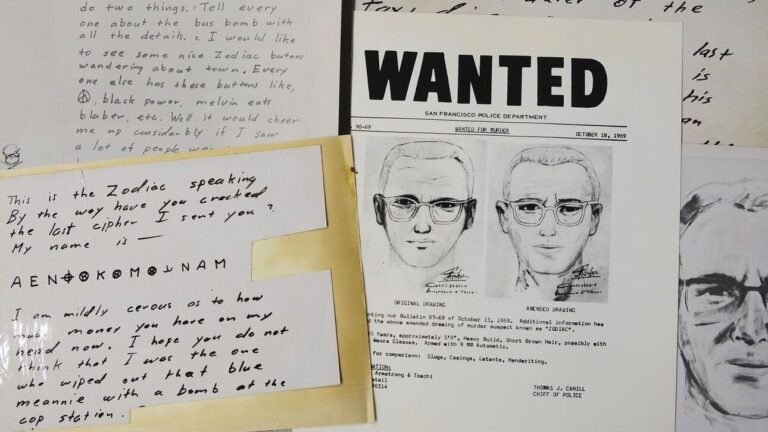 do two things. Tell every
one about the bus bomb with
all the details. I would like
to see some nice Zodiac butons
wandering about town. Every
one else has these buttons like,
black power, melvin eats
bluber, etc. Well it would cheer
me up considerbly if I saw
a lot of people
of the
last
is
his
This is the Zodiac speaking
By the way have you cracked
the last cipher I sent you?
My name is —
A E N ⌖ ⊗ K ⊗ M ⊗ ⅃ N A M
I am mildly cerous as to how
much money you have on my
head now. I hope you do not
think that I was the one
who wiped out that blue
meannie with a bomb at the
cop station.
WANTED
SAN FRANCISCO POLICE DEPARTMENT
90-69 WANTED FOR MURDER OCTOBER 18, 1969
ORIGINAL DRAWING AMENDED DRAWING
our Bulletin 87-69 of October 13, 1969. Additional information has
the above amended drawing of murder suspect known as "ZODIAC".
Years, approximately 5'8", Heavy Build, Short Brown Hair, possibly with
Wears Glasses. Armed with 9 MM Automatic.
for comparison: Slugs, Casings, Latents, Handwriting.
Armstrong & Toschi
THOMAS J. CAHILL
CHIEF OF POLICE